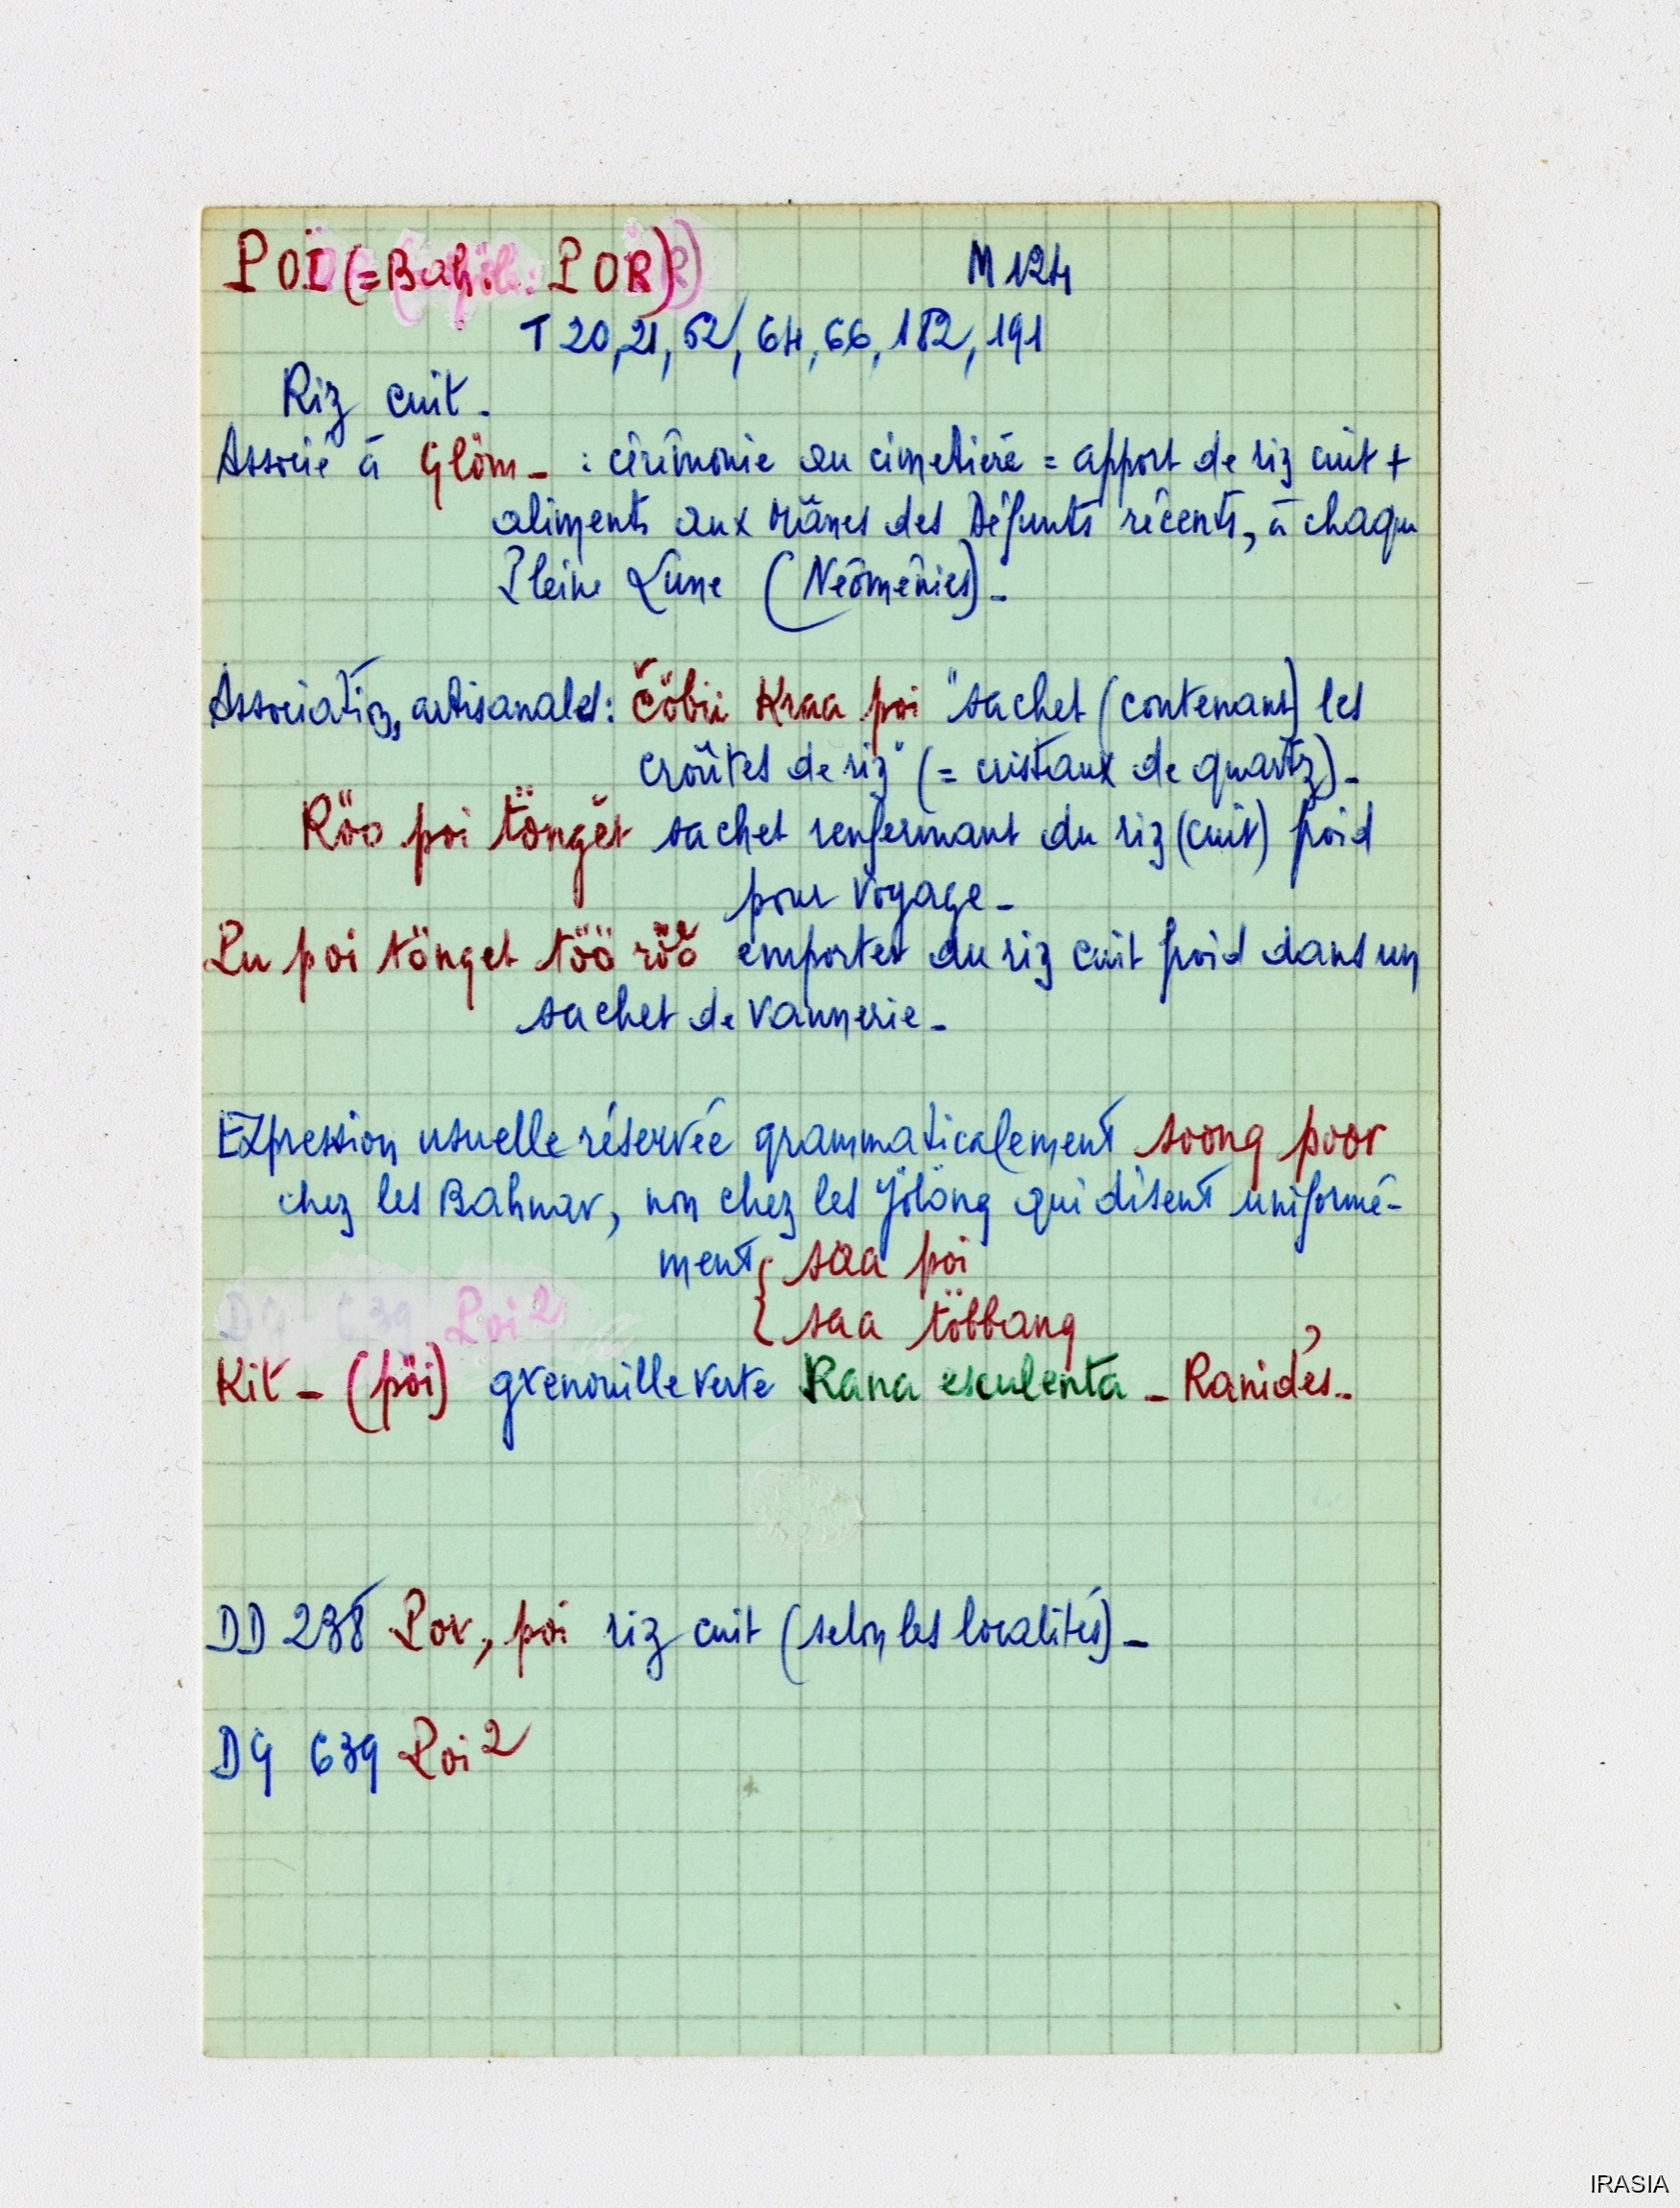 POI (= Bah. : POR)
M 124
T 20, 21, 52, 64, 66, 182, 191
Riz cuit.
Associé à Glöm _ : cérémonie au cimetière = apport de riz cuit +
aliments aux Mânes des Défunts récents, à chaque
Pleine Lune (Néoménies)_
Associations artisanales: čöbii Kraa poi "sachet (contenant) les
croûtes de riz" (= cristaux de quartz)_
Röo poi töngĕt sachet renfermant du riz (cuit) froid
pour voyage_
Lu poi tönget töö röö emporter du riz cuit froid dans un
sachet de vannerie_
Expression usuelle réservée grammaticalement soong poor
chez les Bahnar, non chez les Jölöng qui disent uniformé-
ment { saa poi
{ saa többang
Kit _ (pöi) grenouille verte Rana esculenta _ Ranidés_
DD 238 Por, poi riz cuit (selon les localités)_
DG 639 Poi 2
IRASIA